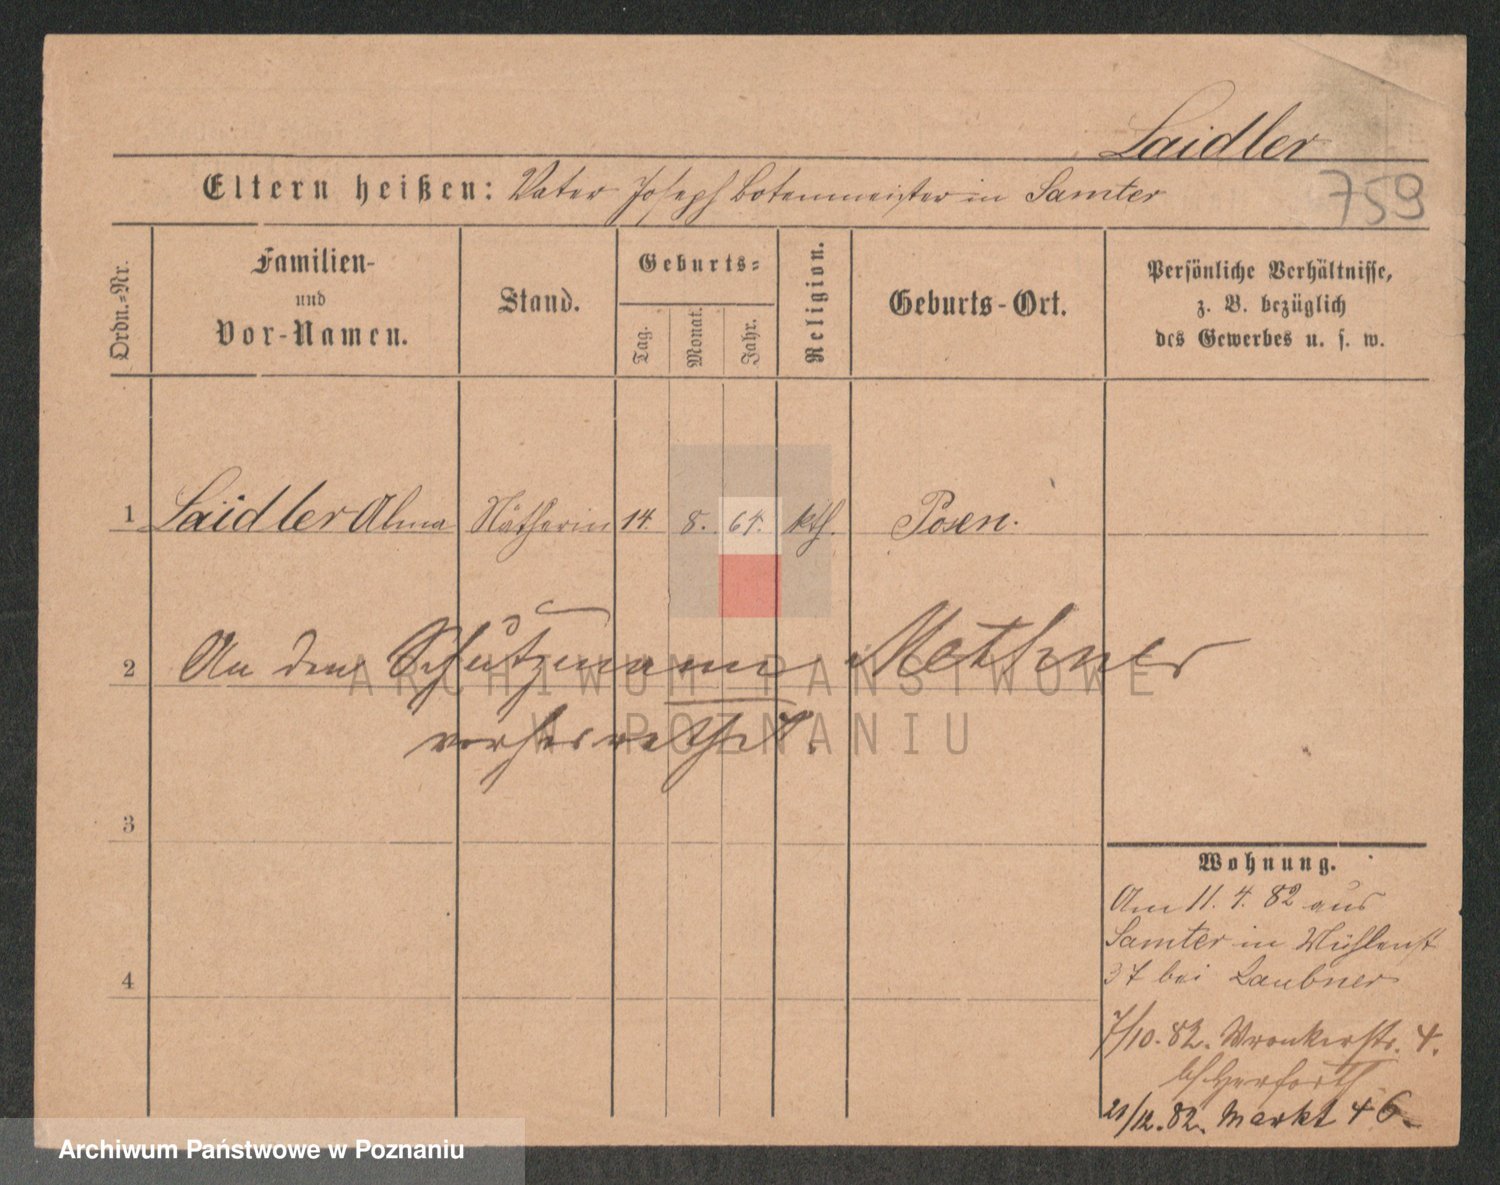 Laidler
759
Eltern heißen: Vater Joseph Botenmeister in Samter
Ordn.=Nr.
Familien- und Vor-Namen.
Stand.
Geburts=
Tag.
Monat.
Jahr.
Religion.
Geburts-Ort.
Persönliche Verhältnisse,
z. B. bezüglich
des Gewerbes u. s. w.
1 Laidler Alma Nätherin 14. 8. 64. kth. Posen.
2 An den Schutzmann Methner
verheirathet.
3
4
Wohnung.
Am 11. 4. 82 aus
Samter in Mühlenst
37 bei Laubner
7/10. 82. Wronkerstr. 4.
b/ Herforth
21/12. 82. Markt 46
ARCHIWUM PAŃSTWOWE
W POZNANIU
Archiwum Państwowe w Poznaniu